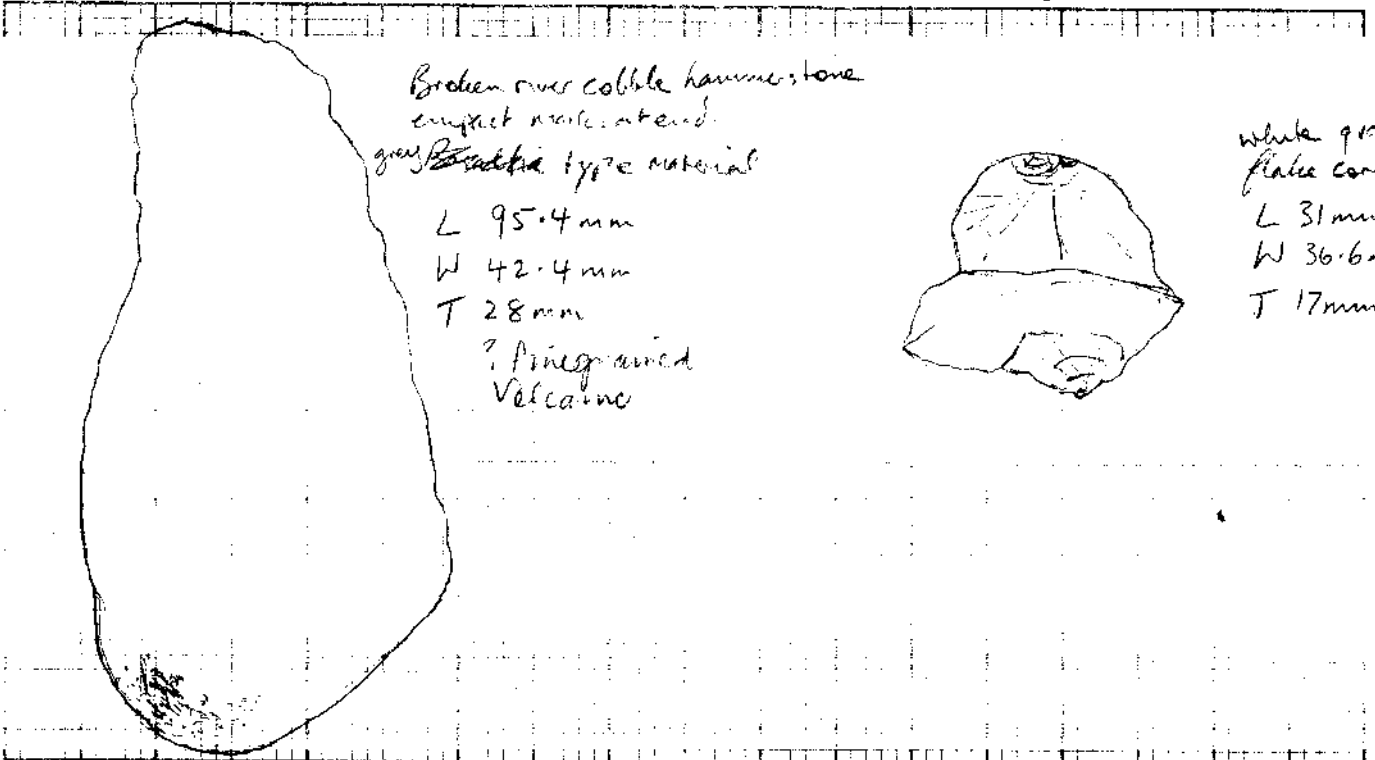 Broken river cobble hammerstone
impact mark at end
grey type material
L 95.4 mm
W 42.4 mm
T 28 mm
? Finegrained
Volcanic
white
flake
L 31mm
W 36.6
T 17mm